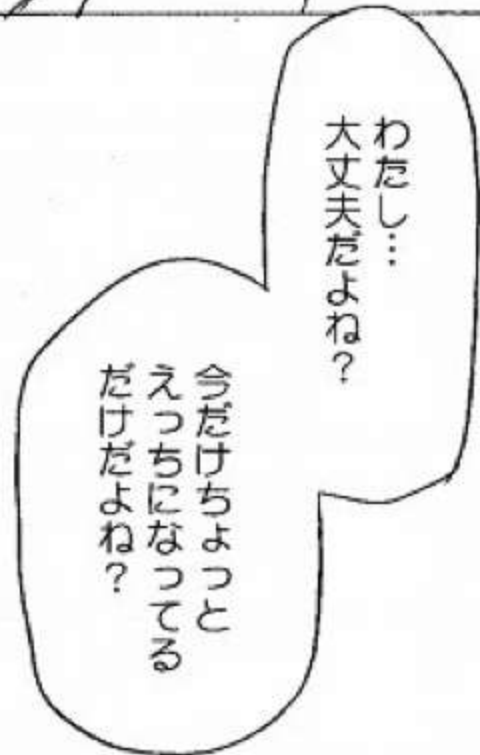 わたし…
大丈夫だよね？
今だけちょっと
えっちになってる
だけだよね？